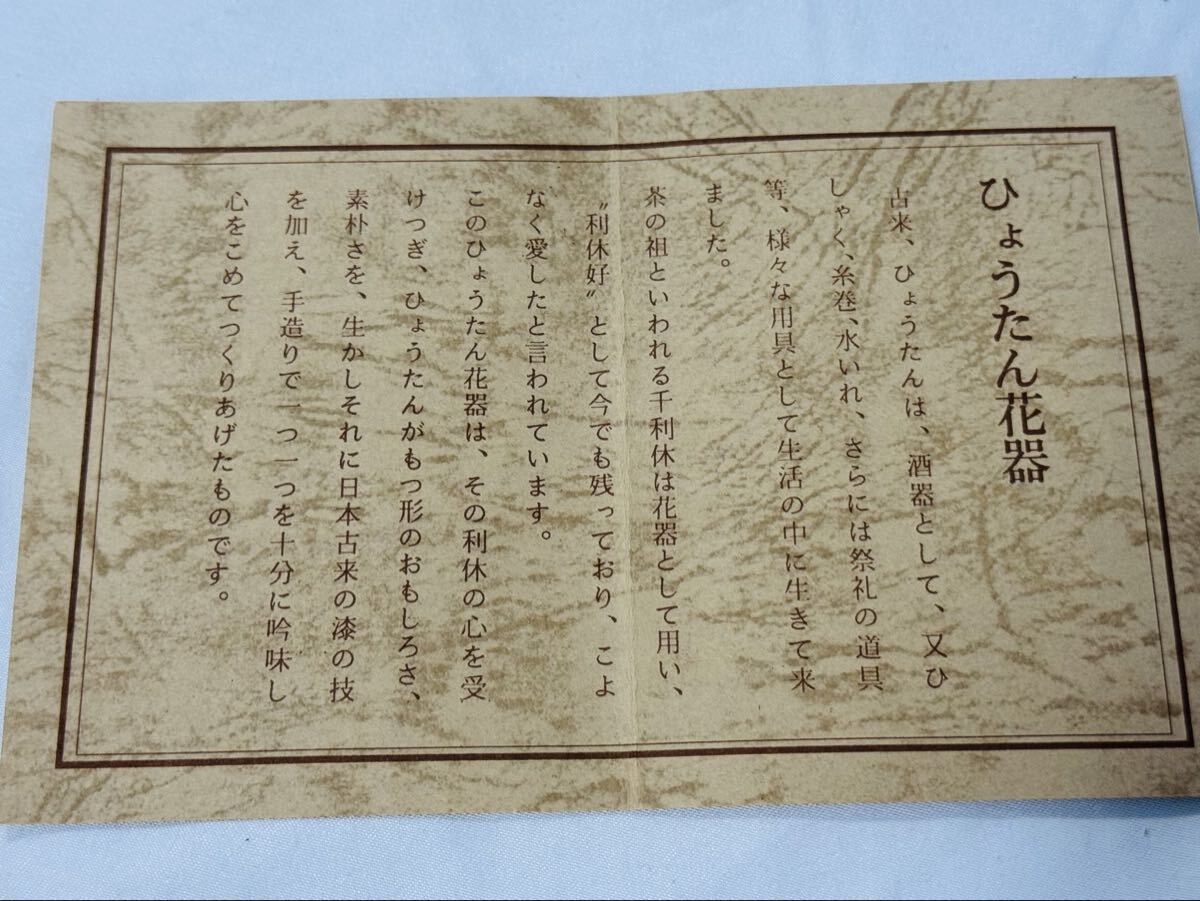 ひょうたん花器
古来、ひょうたんは、酒器として、又ひ
しゃく、糸巻、水いれ、さらには祭礼の道具
等、様々な用具として生活の中に生きて来
ました。
茶の祖といわれる千利休は花器として用い、
〝利休好〟として今でも残っており、こよ
なく愛したと言われています。
このひょうたん花器は、その利休の心を受
けつぎ、ひょうたんがもつ形のおもしろさ、
素朴さを、生かしそれに日本古来の漆の技
を加え、手造りで一つ一つを十分に吟味し
心をこめてつくりあげたものです。